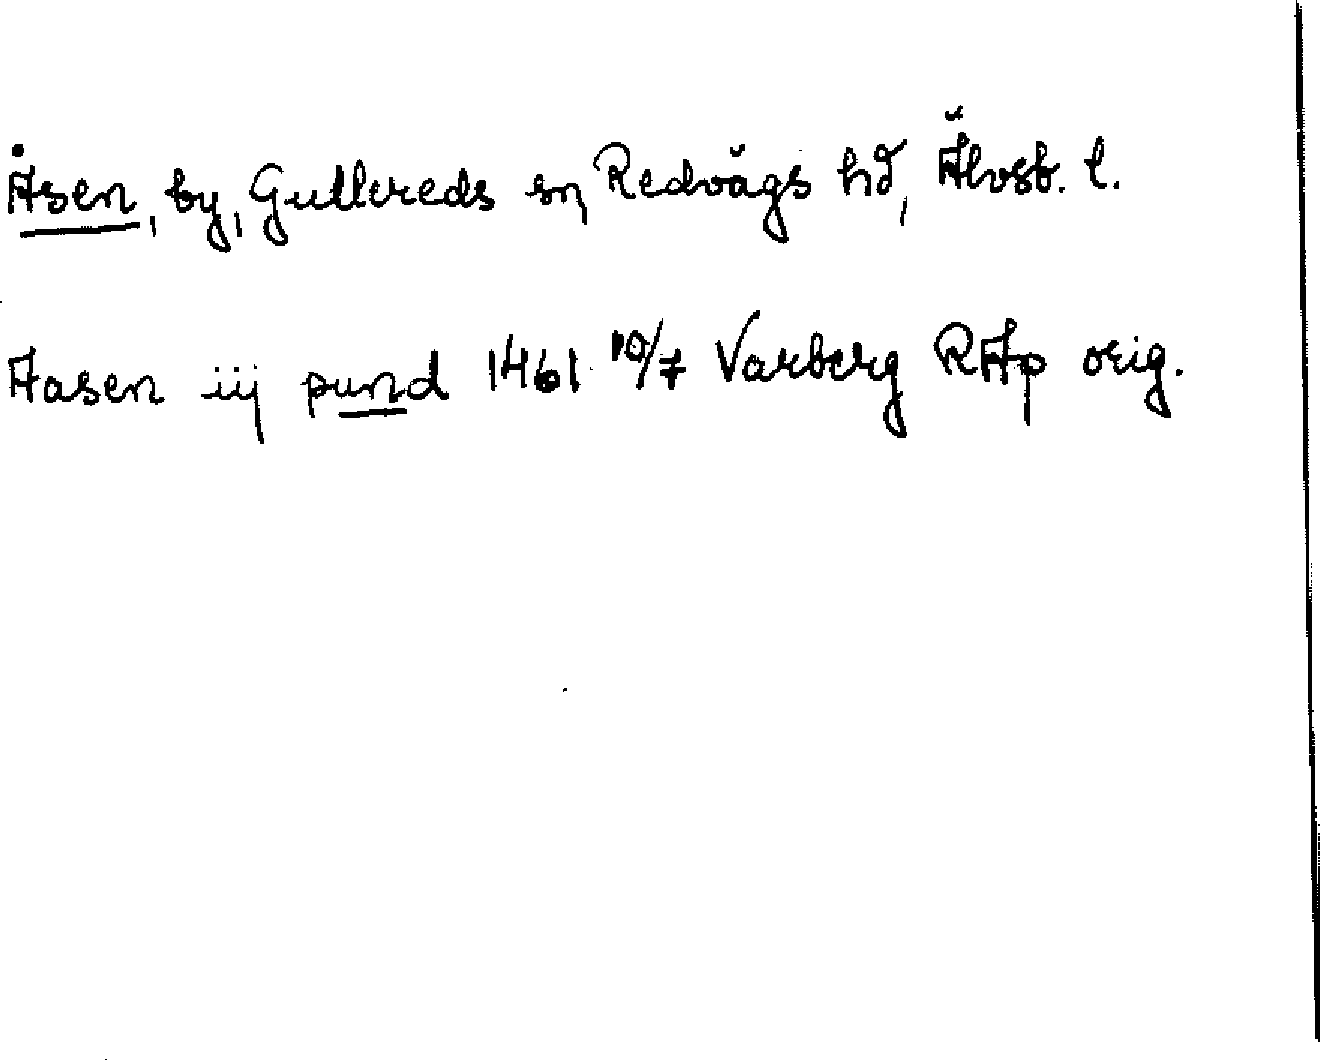 Åsen, by, Gullereds sn, Redvägs hd, Älvsb. l.
Aasen iij pund 1461 10/7 Varberg RAp orig.